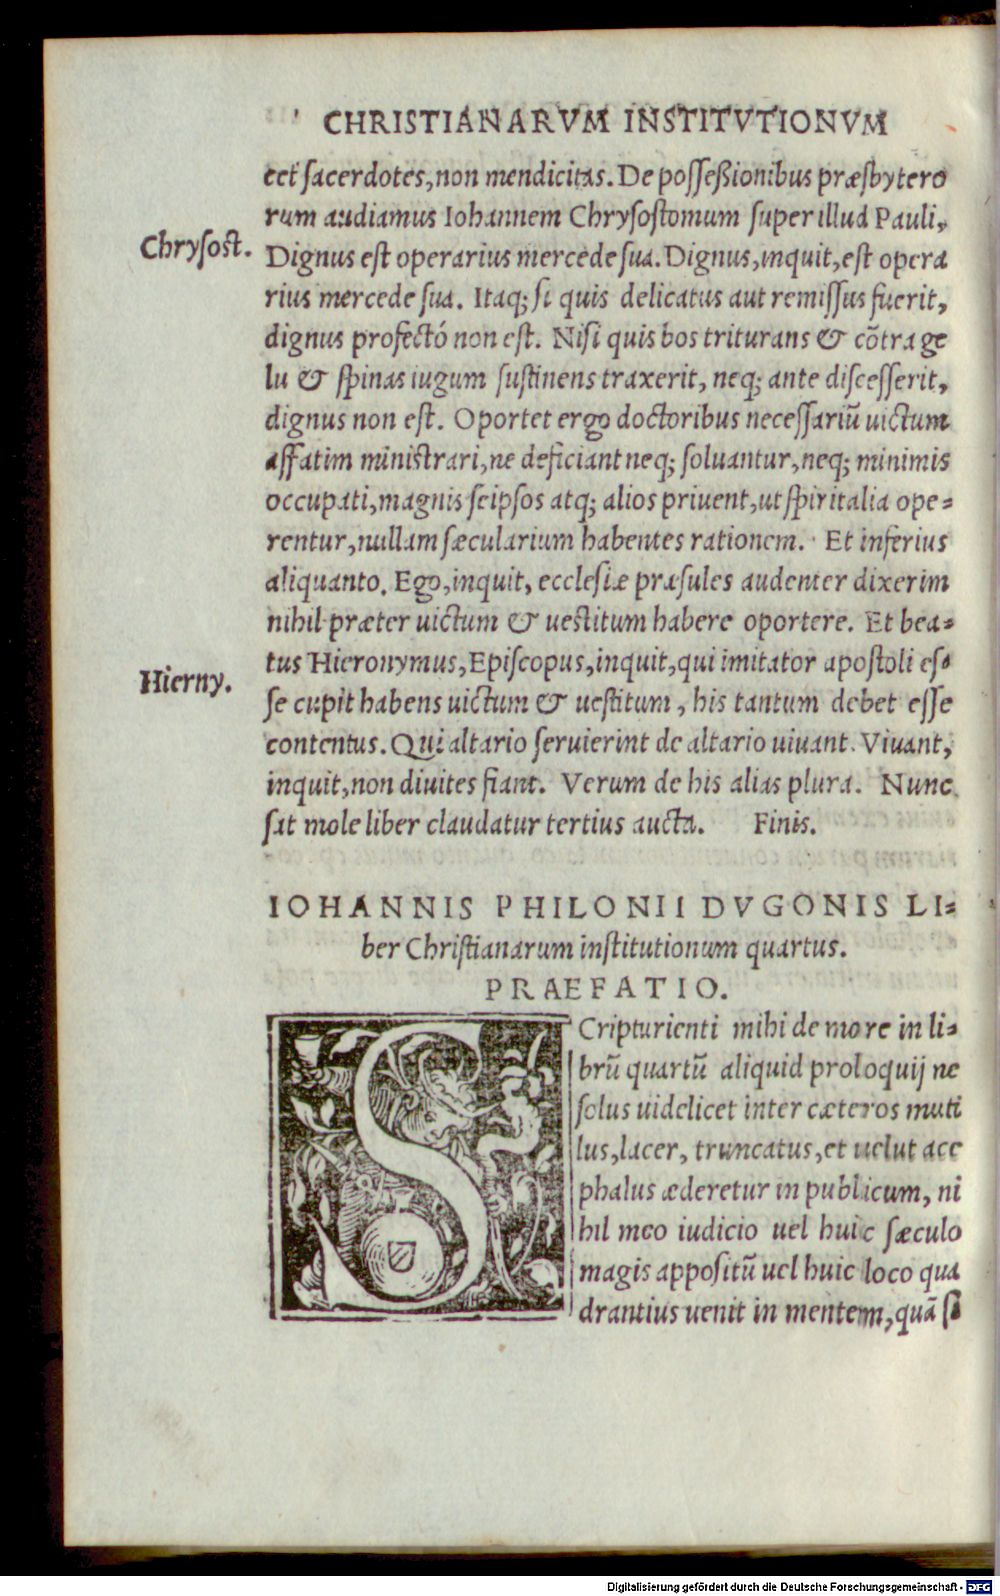 CHRISTIANARVM INSTITVTIONVM
cet sacerdotes, non mendicitas. De posseßionibus præsbytero
rum audiamus Iohannem Chrysostomum super illud Pauli,
Chrysost.
Dignus est operarius mercede sua. Dignus, inquit, est opera
rius mercede sua. Itaq; si quis delicatus aut remissus fuerit,
dignus profectó non est. Nisi quis bos triturans & cõtra ge
lu & spinas iugum sustinens traxerit, neq; ante discesserit,
dignus non est. Oportet ergo doctoribus necessariũ uictum
affatim ministrari, ne deficiant neq; soluantur, neq; minimis
occupati, magnis seipsos atq; alios priuent, ut spiritalia ope=
rentur, nullam sæcularium habentes rationem. Et inferius
aliquanto. Ego, inquit, ecclesiæ præsules audenter dixerim
nihil præter uictum & uestitum habere oportere. Et bea=
tus Hieronymus, Episcopus, inquit, qui imitator apostoli es=
Hierny.
se cupit habens uictum & uestitum, his tantum debet esse
contentus. Qui altario seruierint de altario uiuant. Viuant,
inquit, non diuites fiant. Verum de his alias plura. Nunc
sat mole liber claudatur tertius aucta. Finis.
IOHANNIS PHILONII DVGONIS LI=
ber Christianarum institutionum quartus.
PRAEFATIO.
SCripturienti mihi de more in li=
brũ quartũ aliquid proloquij ne
solus uidelicet inter cæteros muti
lus, lacer, truncatus, et uelut ace
phalus æderetur in publicum, ni
hil meo iudicio uel huic sæculo
magis appositũ uel huic loco qua
drantius uenit in mentem, quã si
Digitalisierung gefördert durch die Deutsche Forschungsgemeinschaft - DFG